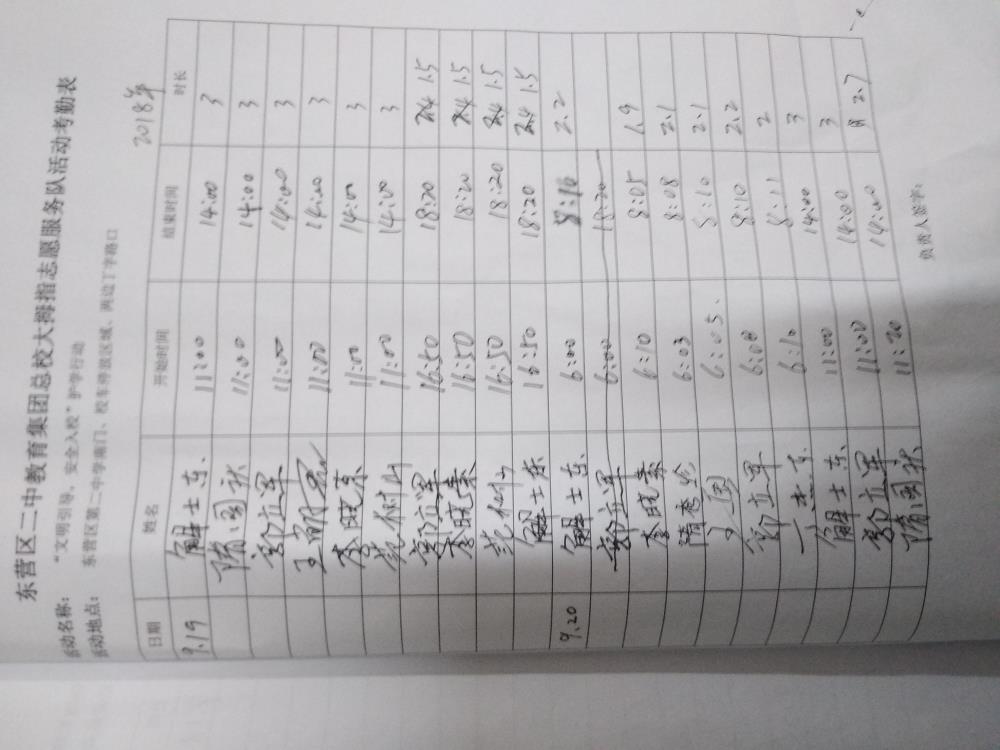 东营区二中教育集团总校大拇指志愿服务队活动考勤表
活动名称： "文明引导，安全入校"护学行动 2018年
活动地点： 东营区第二中学南门、校车停放区域、两边丁字路口
日期 姓名 开始时间 结束时间 时长
9.19 解士东、 11:00 14:00 3
隋国秋 11:00 14:00 3
郭立军 11:00 14:00 3
王明군 11:00 14:00 3
李晓东 11:00 14:00 3
11:00 14:00 3
郭立军 16:50 18:20 1.5
李晓秦 16:50 18:20 1.5
16:50 18:20 1.5
解士东 16:50 18:20 1.5
9.20 解士东、 6:00 8:10 2.2
郭立军 6:00 18:20
李晓秦 6:10 8:05 1.9
隋 珍 6:03 8:08 2.1
6:05、 8:10 2.1
郭立军 6:08 8:10 2.2
6:10 8:11 2
解士东、 11:00 14:00 3
郭立军 11:00 14:00 3
隋国秋 11:20 14:00 2.7
负责人签字：